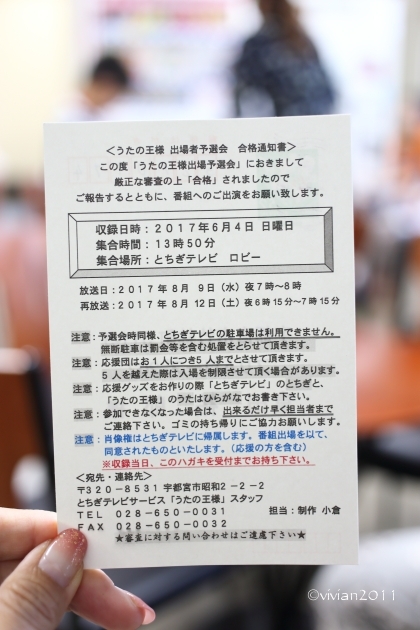 <うたの王様 出場者予選会 合格通知書>
この度「うたの王様出場予選会」におきまして
厳正な審査の上「合格」されましたので
ご報告するとともに、番組へのご出演をお願い致します。
収録日時：２０１７年６月４日 日曜日
集合時間：１３時５０分
集合場所：とちぎテレビ ロビー
放送日：２０１７年 ８月 ９日（水）夜７時～８時
再放送：２０１７年 ８月１２日（土）夜６時１５分～７時１５分
注意：予選会時同様、とちぎテレビの駐車場は利用できません。
無断駐車は罰金等を含む処置をとらせて頂きます。
注意：応援団はお１人につき５人までとさせて頂きます。
５人を越えた際は入場を制限させて頂く場合があります。
注意：応援グッズをお作りの際「とちぎテレビ」のとちぎと、
「うたの王様」のうたはひらがなでお書き下さい。
注意：参加できなくなった場合は、出来るだけ早く担当者まで
ご連絡下さい。ゴミの持ち帰りにご協力お願いします。
注意：肖像権はとちぎテレビに帰属します。番組出場を以て、
同意されたものといたします。（応援の方を含む）
※収録当日、このハガキを受付までお持ち下さい。
＜宛先・連絡先＞
〒３２０－８５３１ 宇都宮市昭和２－２－２
とちぎテレビサービス「うたの王様」スタッフ
ＴＥＬ ０２８－６５０－００３１ 担当：制作 小倉
ＦＡＸ ０２８－６５０－００３２
★審査に対する問い合わせはご遠慮下さい★
©vivian2011